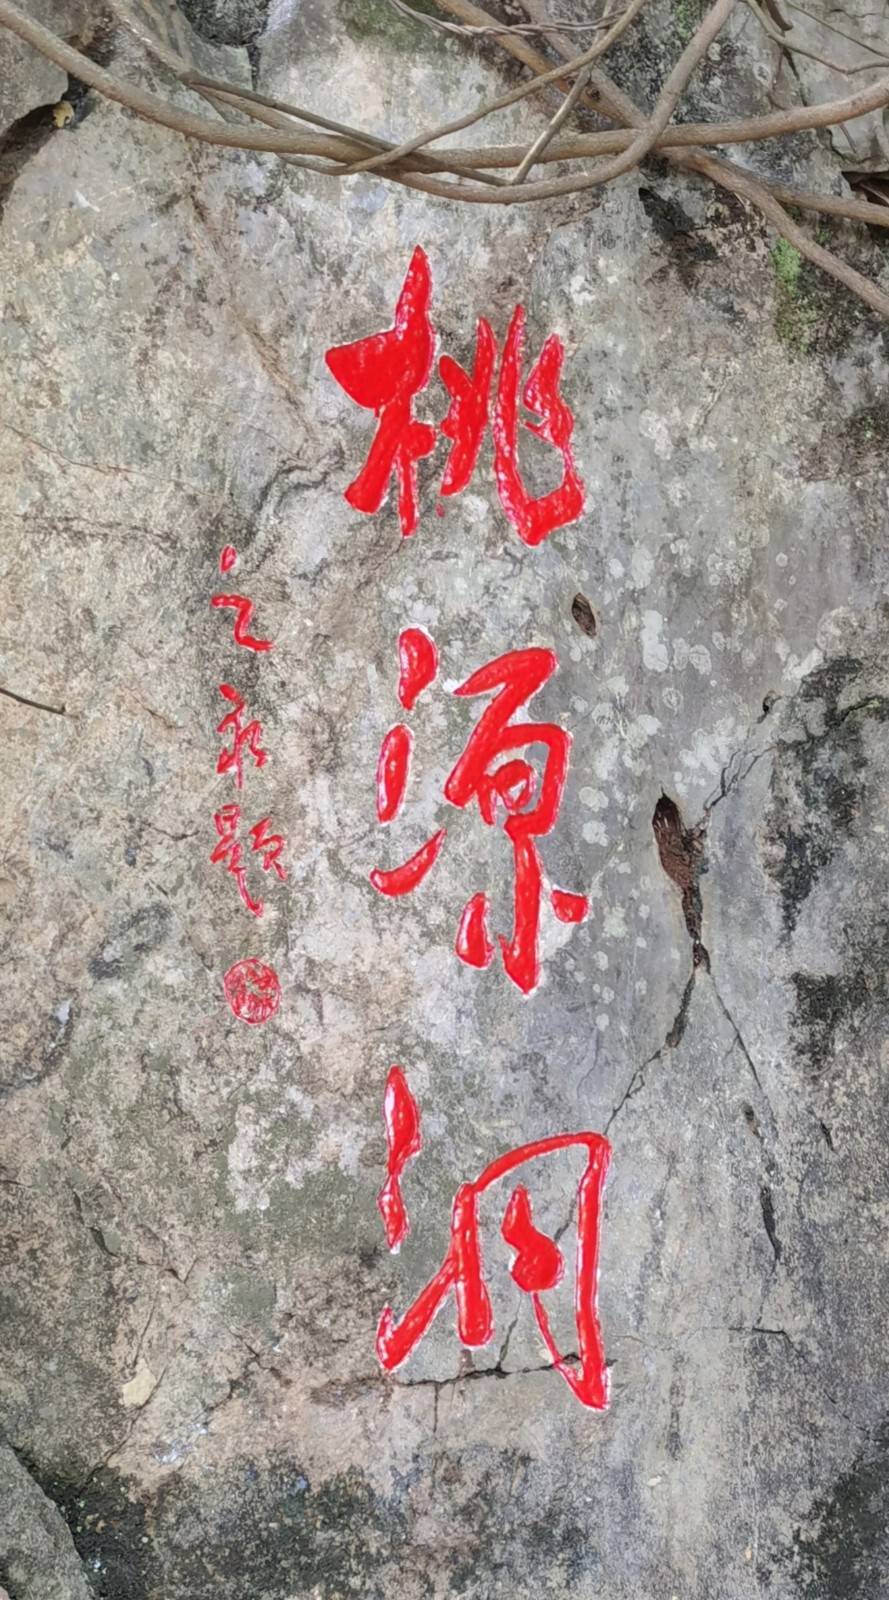 桃源洞
之永題